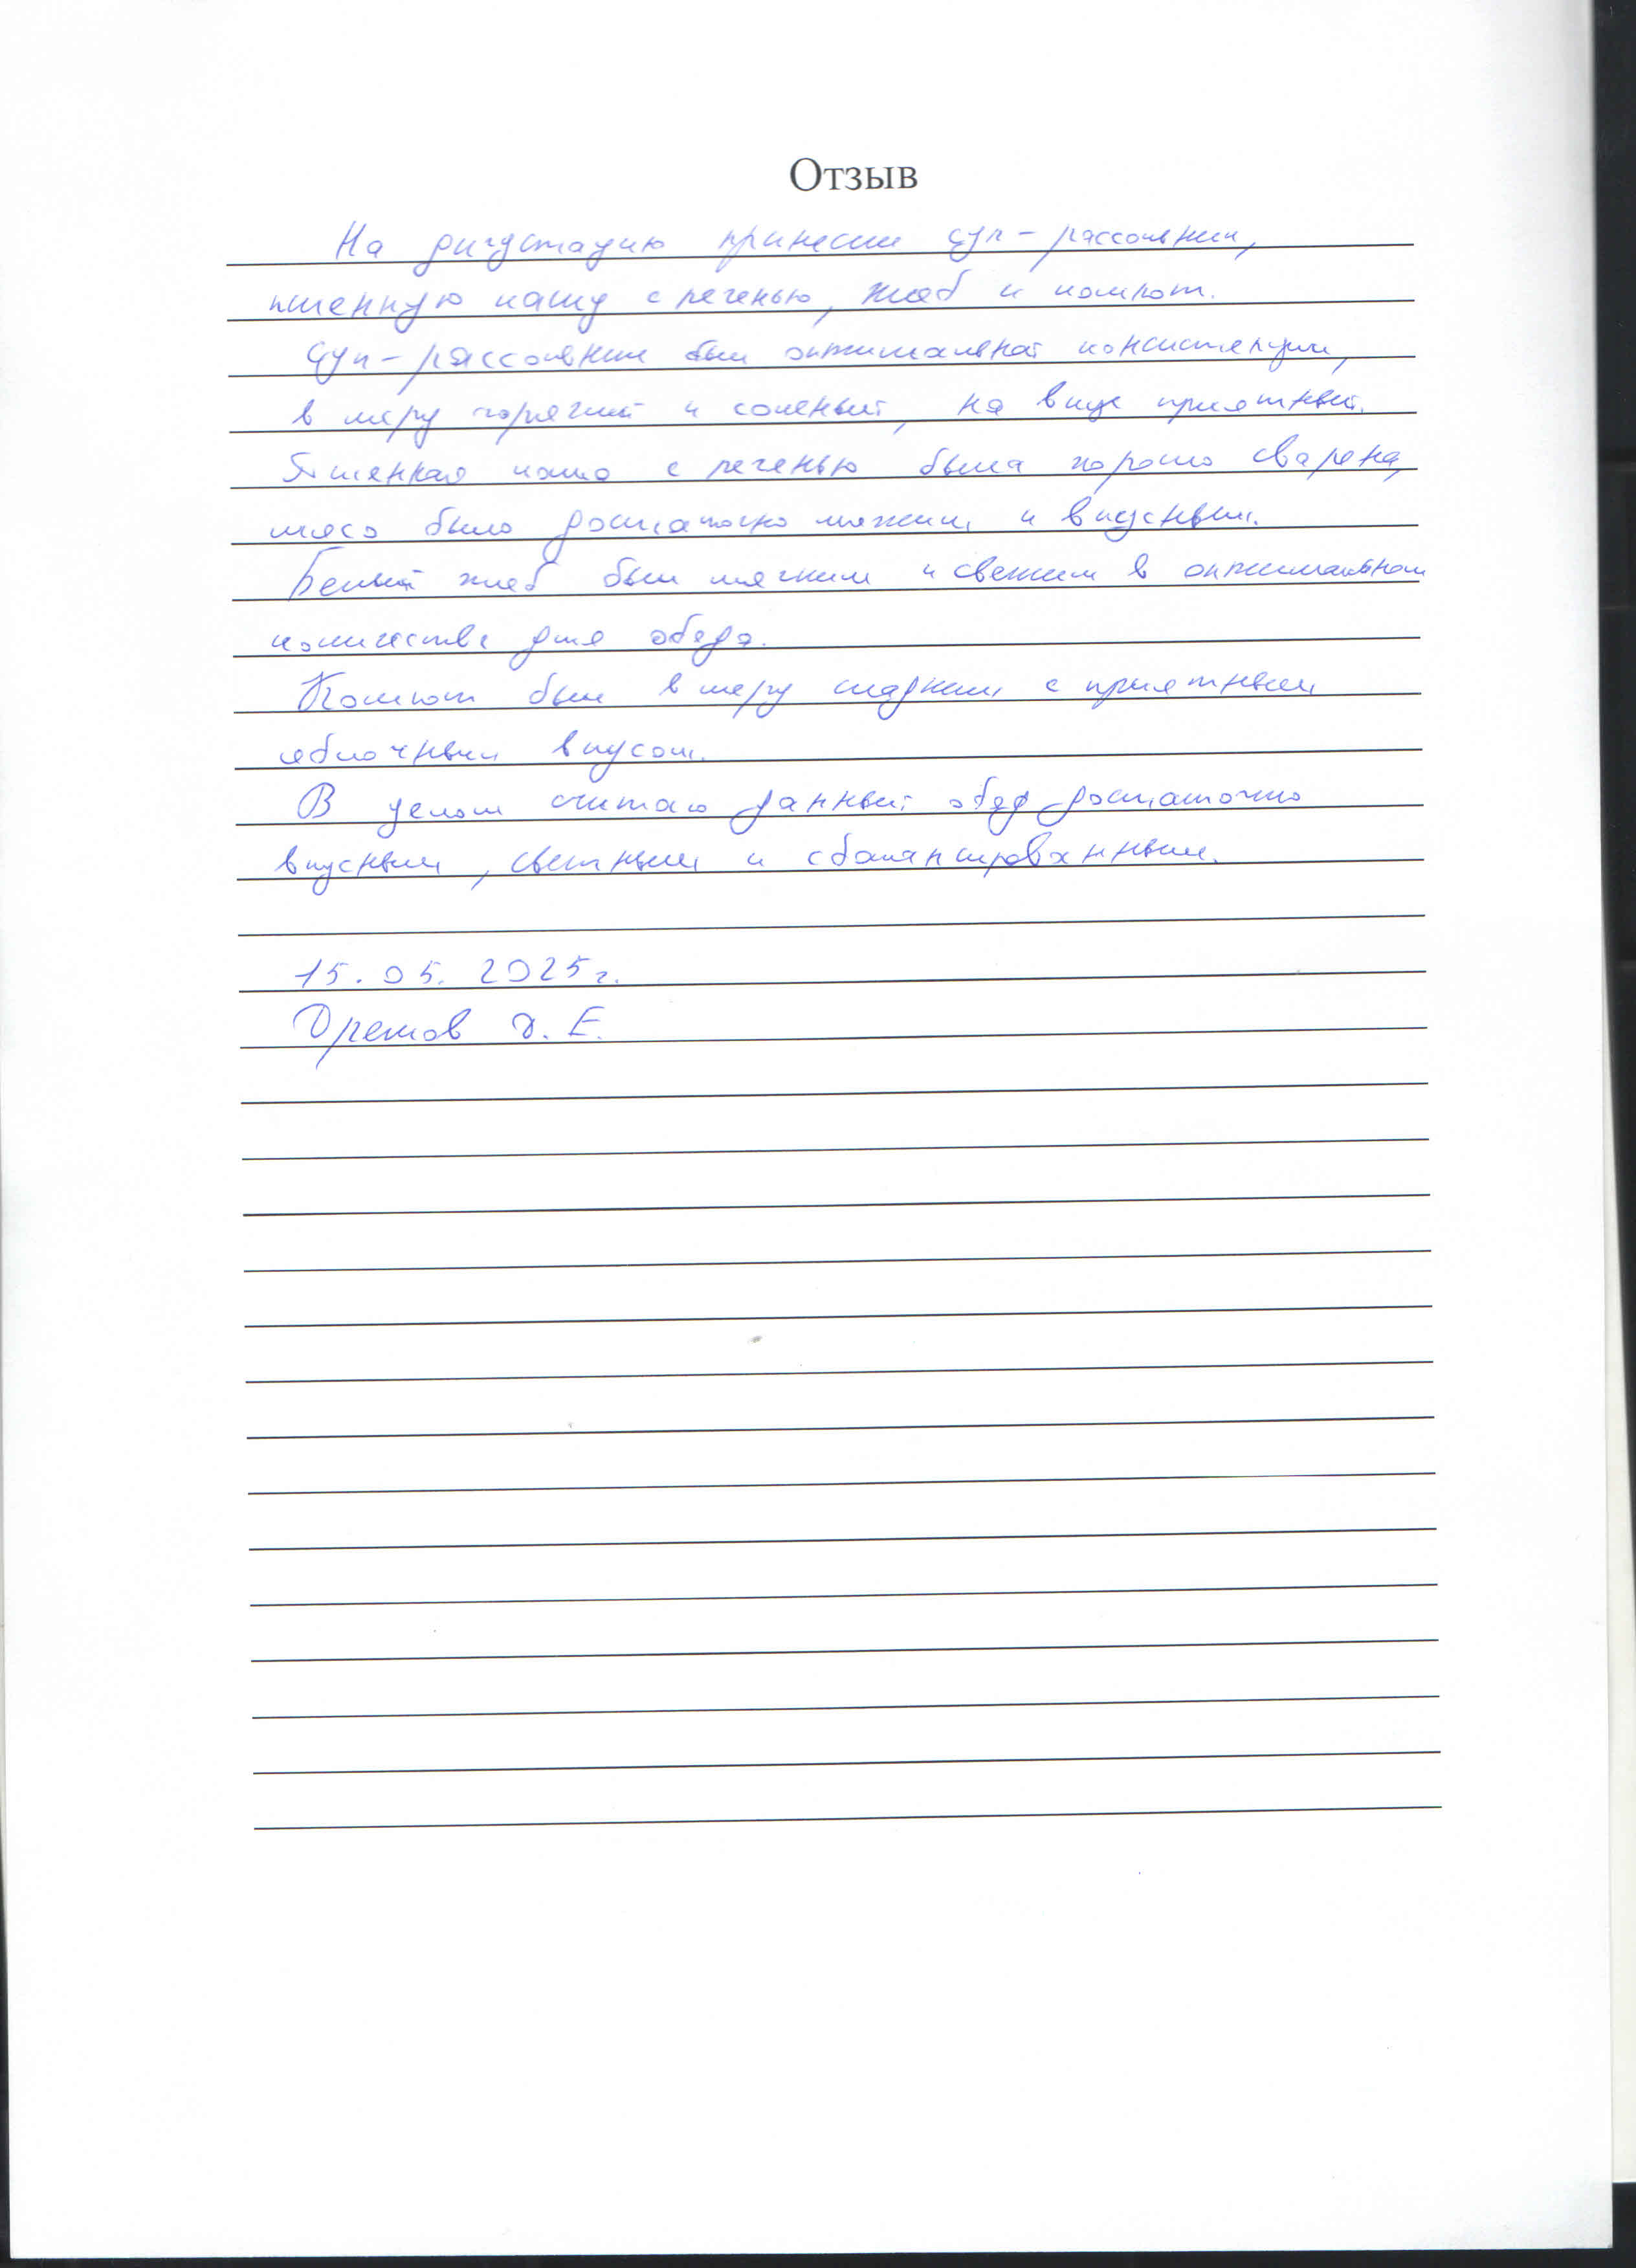 Отзыв
На дигустацию принесли суп-рассольник,
пшенную кашу с печенью, хлеб и компот.
Суп-рассольник был оптимальной консистенции,
в меру горячий и соленый, на вкус приятный.
Пшенная каша с печенью была хорошо сварена,
мясо было достаточно мягким и вкусным.
Белый хлеб был мягким и свежим в оптимальном
количестве для обеда.
Компот был в меру сладким с приятным
яблочным вкусом.
В целом считаю данный обед достаточно
вкусным, сытным и сбалансированным.
15.05.2025г.
Д. Е.